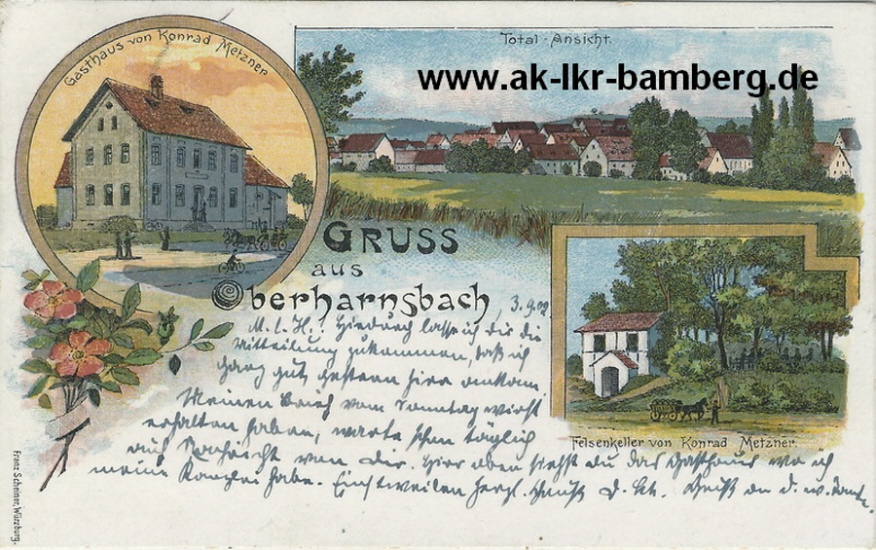 Gasthaus von Konrad Metzner
Total-Ansicht.
www.ak-lkr-bamberg.de
GRUSS
aus
Oberharnsbach, 3.9.02
M. l. H.! Hiedurch lasse ich dir die
Mitteilung zukommen, daß ich
ganz gut gestern hier ankam
Meinen Brief vom Sonntag wirst
erhalten haben, warte schon täglich
auf Nachricht von dir. Hier oben siehst du das Gasthaus wo ich
meine Kanzlei habe. Einstweilen herzl.
Felsenkeller von Konrad Metzner.
Franz Scheiner, Würzburg.